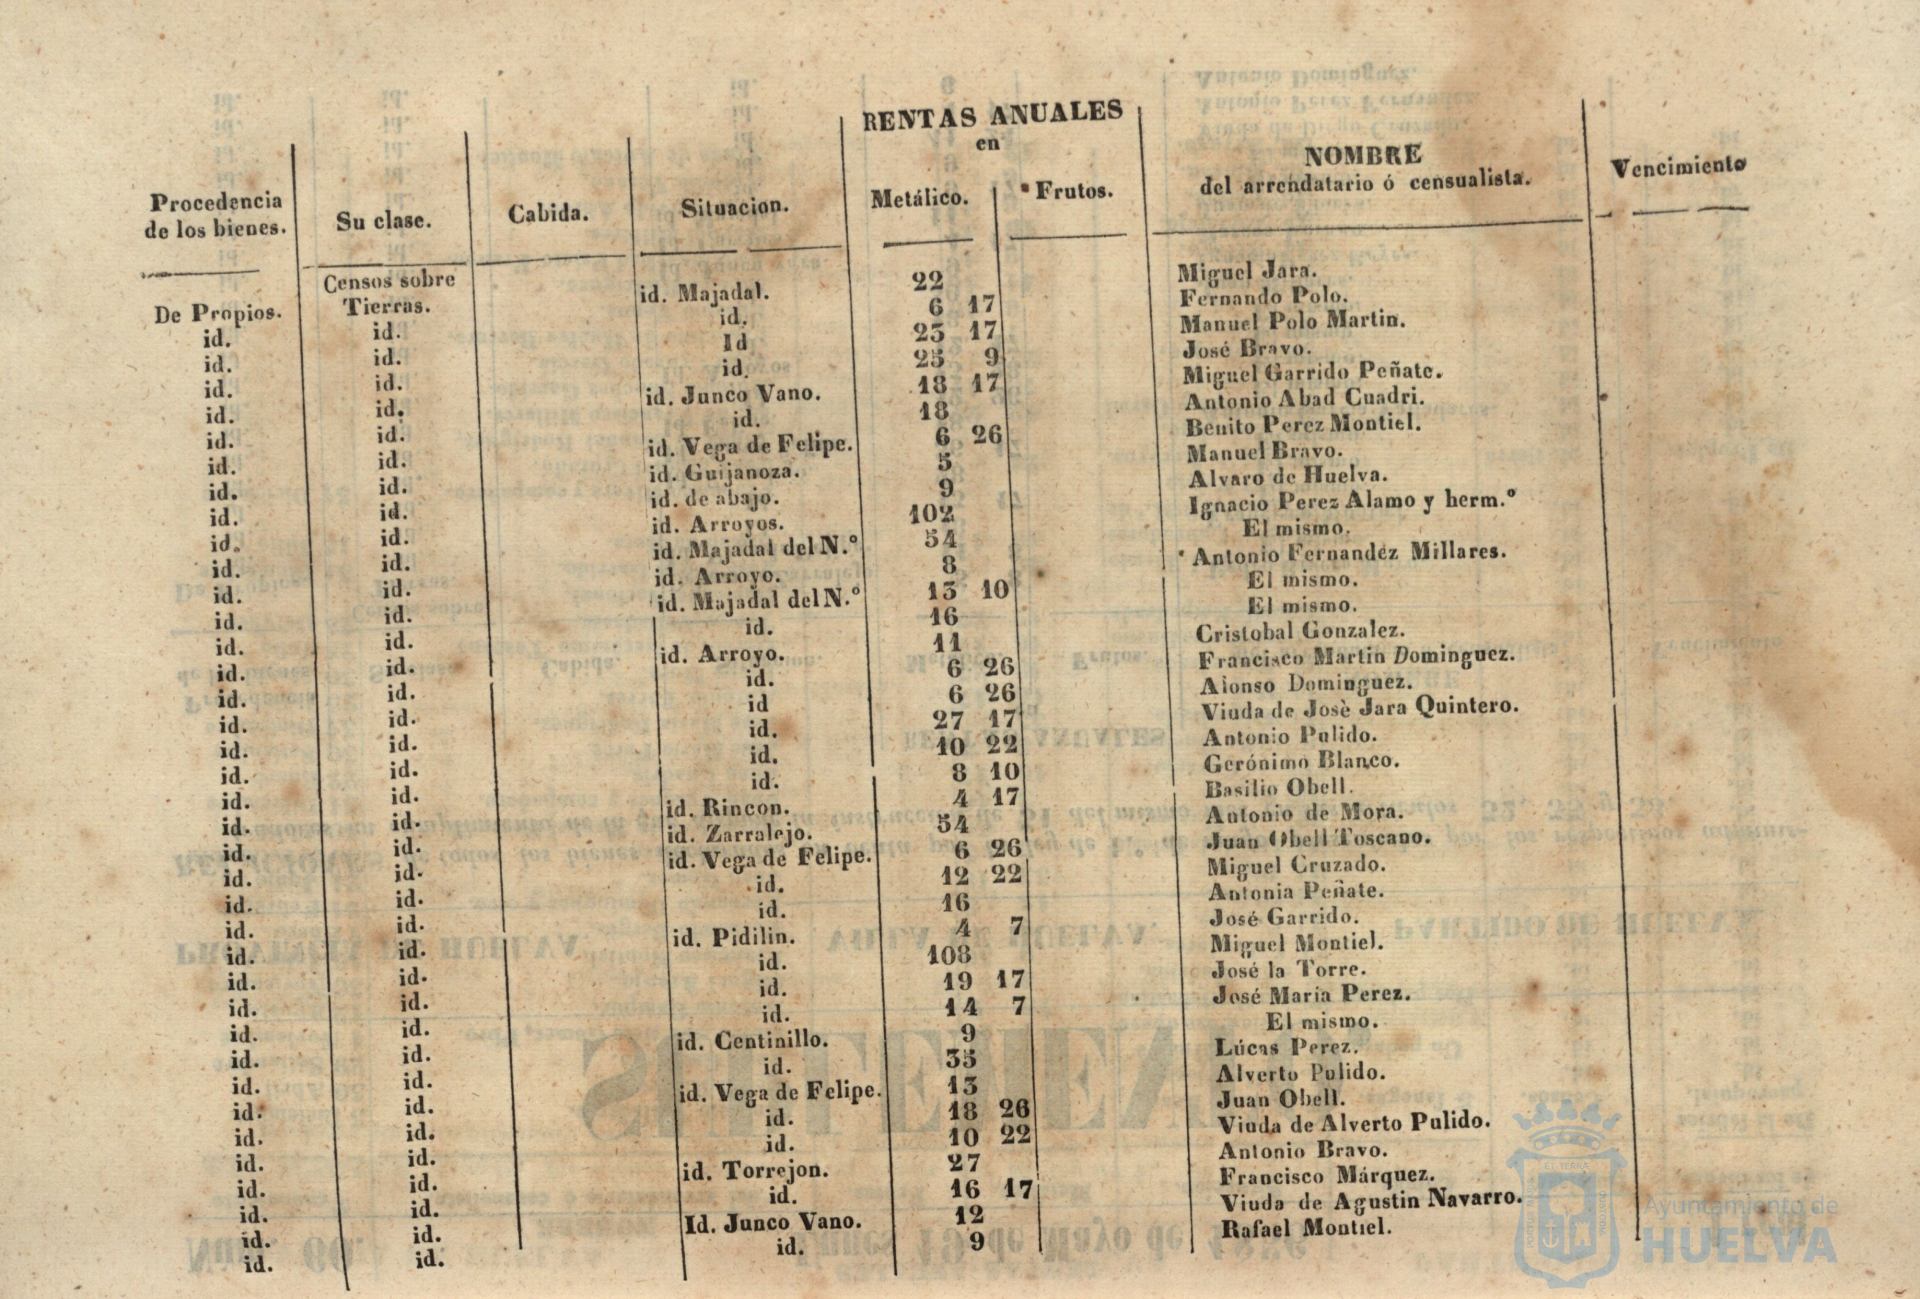 RENTAS ANUALES
en
Procedencia
de los bienes.
Su clase.
Cabida.
Situacion.
Metálico.
Frutos.
NOMBRE
del arrendatario ó censualista.
Vencimiento
Censos sobre
De Propios. Tierras. id. Majadal. 22 Miguel Jara.
id. id. id. 6 17 Fernando Polo.
id. id. Id 23 17 Manuel Polo Martin.
id. id. id. 25 9 José Bravo.
id. id. id. Junco Vano. 18 17 Miguel Garrido Peñate.
id. id. id. 18 Antonio Abad Cuadri.
id. id. id. Vega de Felipe. 6 26 Benito Perez Montiel.
id. id. id. Guijanoza. 5 Manuel Bravo.
id. id. id. de abajo. 9 Alvaro de Huelva.
id. id. id. Arroyos. 102 Ignacio Perez Alamo y herm.º
id. id. id. Majadal del N.º 54 El mismo.
id. id. id. Arroyo. 8 Antonio Fernandez Millares.
id. id. id. Majadal del N.º 13 10 El mismo.
id. id. id. 16 El mismo.
id. id. id. Arroyo. 11 Cristobal Gonzalez.
id. id. id. 6 26 Francisco Martin Dominguez.
id. id. id 6 26 Alonso Dominguez.
id. id. id. 27 17 Viuda de Josè Jara Quintero.
id. id. id. 10 22 Antonio Pulido.
id. id. id. 8 10 Gerónimo Blanco.
id. id. id. Rincon. 4 17 Basilio Obell.
id. id. id. Zarralejo. 54 Antonio de Mora.
id. id. id. Vega de Felipe. 6 26 Juan Obell Toscano.
id. id. id. 12 22 Miguel Cruzado.
id. id. id. 16 Antonia Peñate.
id. id. id. Pidilin. 4 7 José Garrido.
id. id. id. 108 Miguel Montiel.
id. id. id. 19 17 José la Torre.
id. id. id. 14 7 José Maria Perez.
id. id. id. Centinillo. 9 El mismo.
id. id. id. 35 Lúcas Perez.
id. id. id. Vega de Felipe. 13 Alverto Pulido.
id. id. id. 18 26 Juan Obell.
id. id. id. 10 22 Viuda de Alverto Pulido.
id. id. id. Torrejon. 27 Antonio Bravo.
id. id. id. 16 17 Francisco Márquez.
id. id. Id. Junco Vano. 12 Viuda de Agustin Navarro.
id. id. id. 9 Rafael Montiel.
Ayuntamiento de
HUELVA